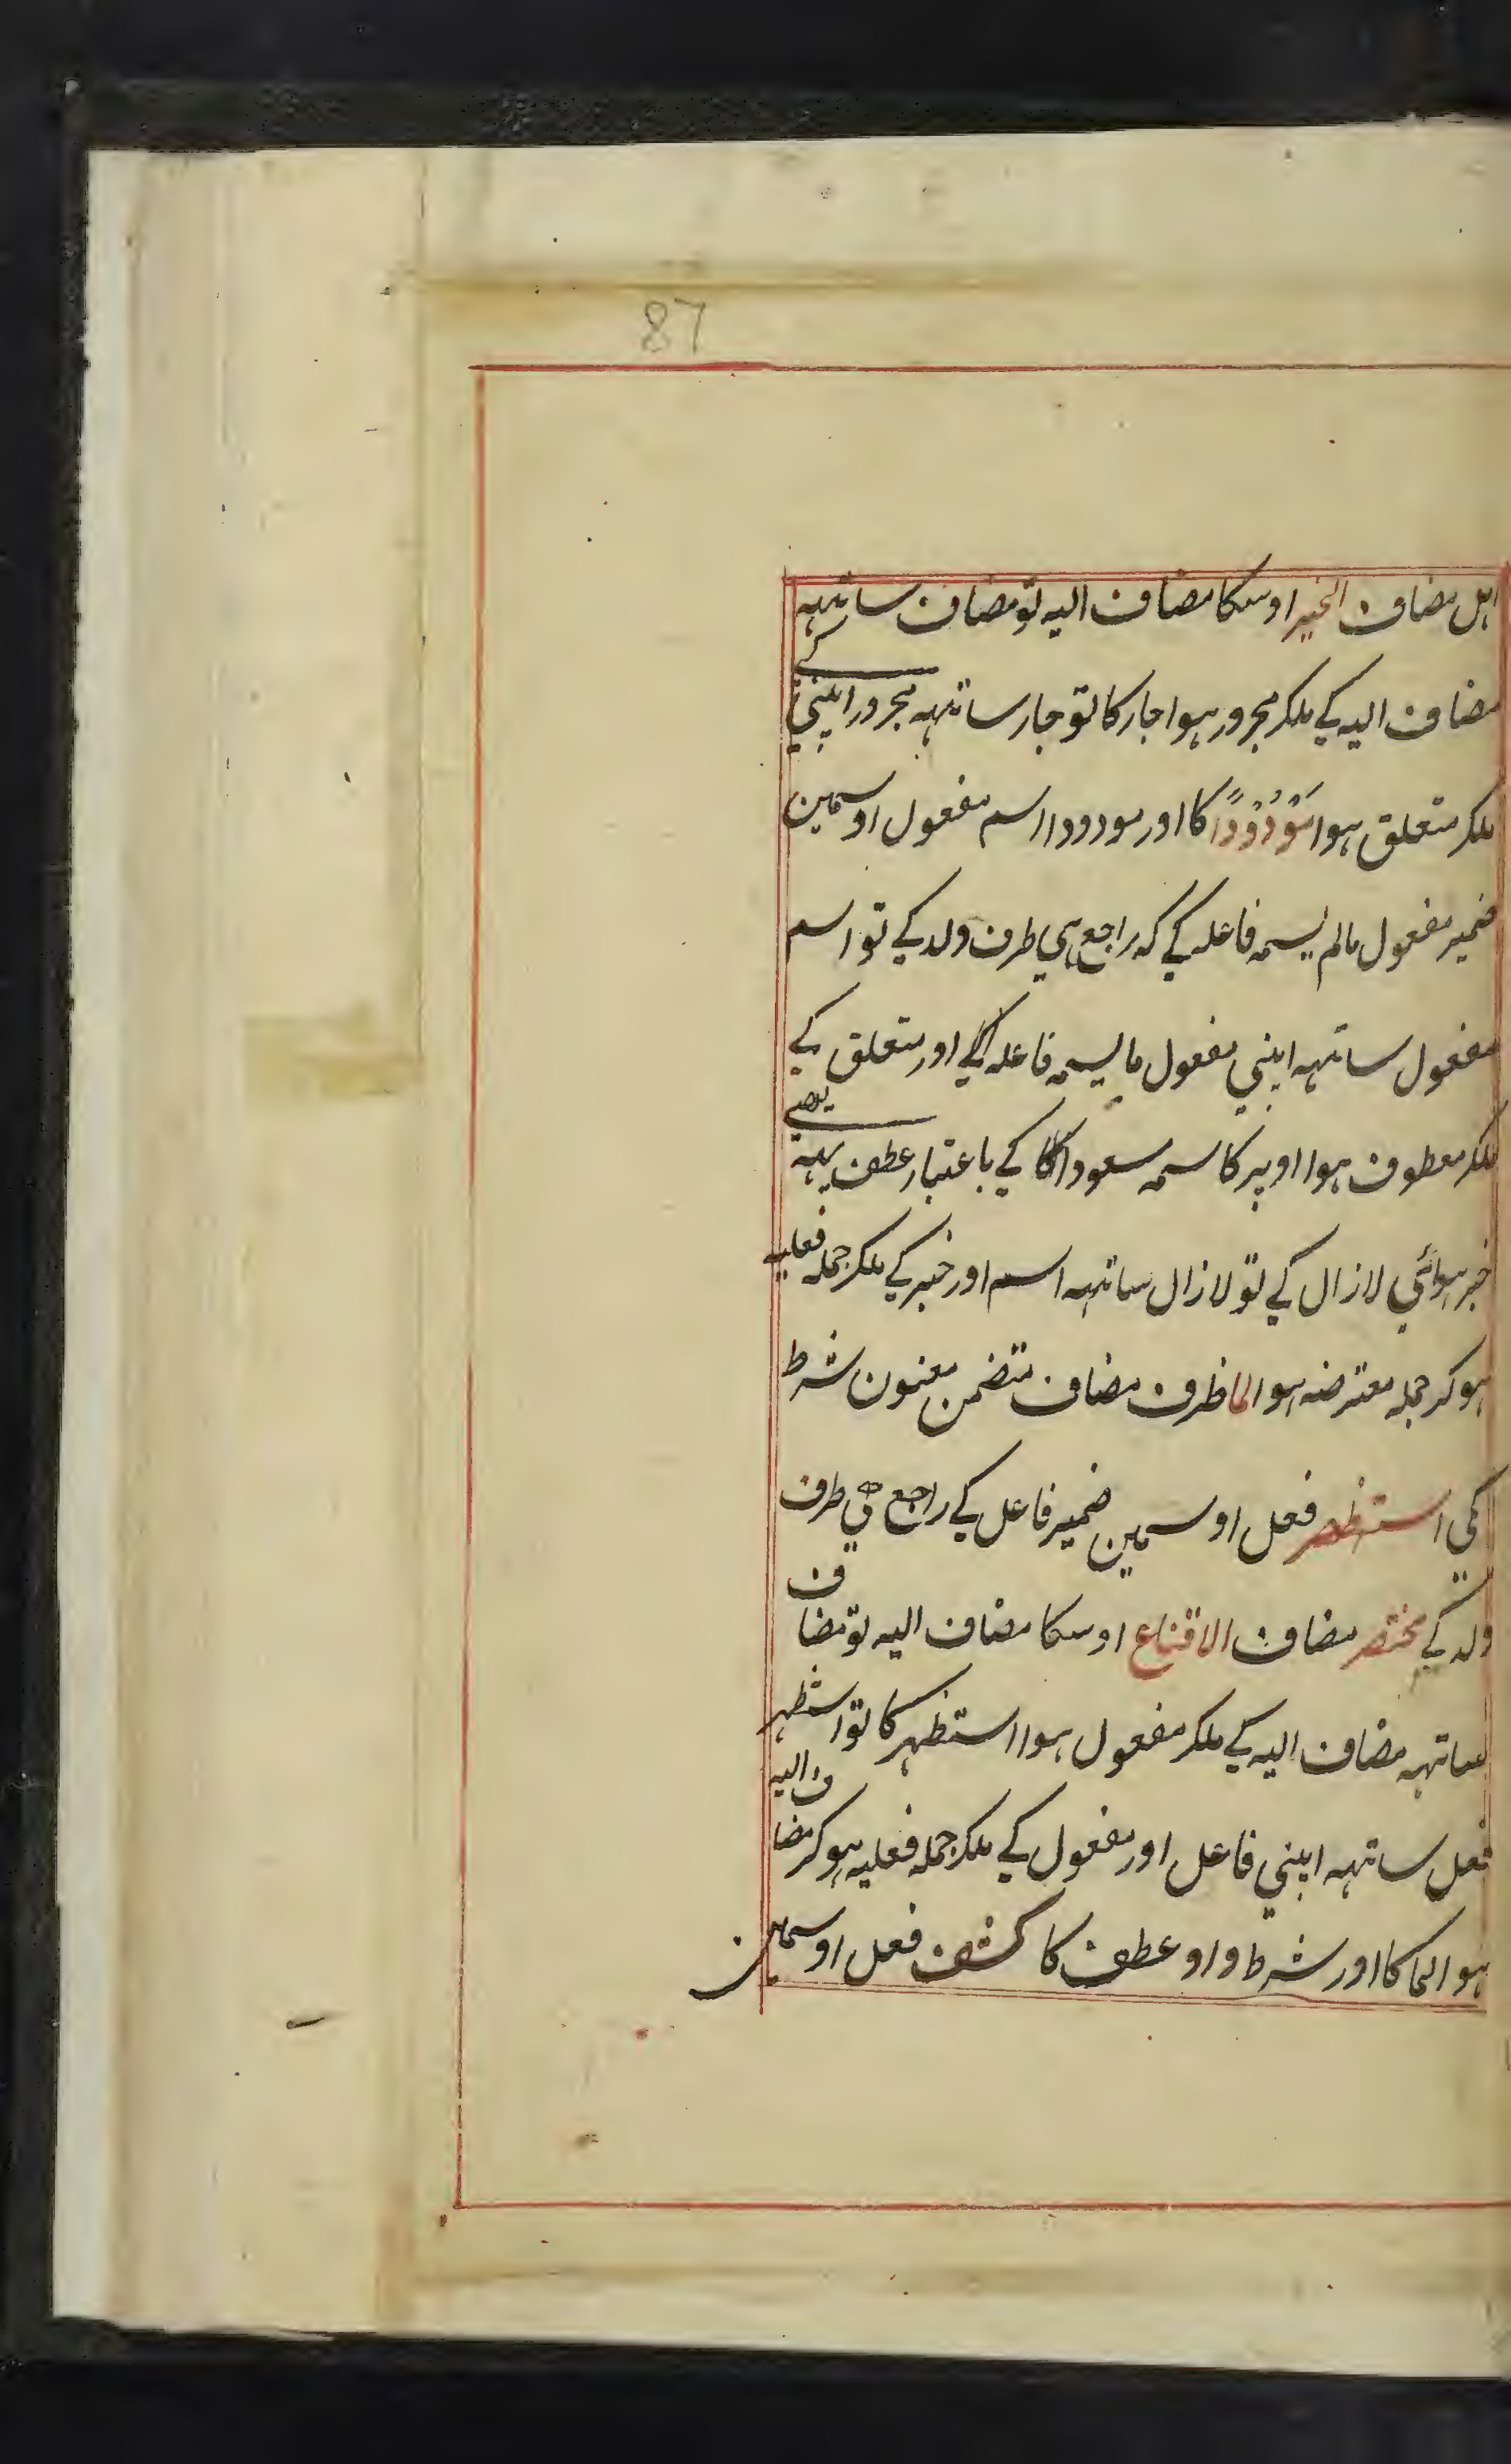 87
اہل مضاف الخیر اوسکا مضاف الیہ تو مضاف ساتہہ
مضاف الیہ کے ملکر مجرور ہوا جار کا تو جار ساتہہ مجرور اپنی کے
ملکر متعلق ہوا مَوْدُوْدًا کا اور مودودا اسم مفعول اوسمین
ضمیر مفعول مالم یسمہ فاعلہ کے کہ راجع ہی طرف ولد کے تو اسم
مفعول ساتہہ اپنی مفعول ما یسمہ فاعلہ کے اور متعلق کے
ملکر معطوف ہوا اوپر کاسمہ مسعودا کا کے باعتبار عطف یہہ
خبر ہوائی لازال کے تو لازال ساتہہ اسم اور خبر کے ملکر جملہ فعلیہ
ہوکر جملہ معترضہ ہوا لما ظرف مضاف متضمن معنون شرط
کی استظہر فعل اوسمین ضمیر فاعل کے راجع ہی طرف
ولد کے مختصر مضاف الاقناع اوسکا مضاف الیہ تو مضاف
ساتہہ مضاف الیہ کے ملکر مفعول ہوا استظہر کا تو استظہر
فعل ساتہہ اپنی فاعل اور مفعول کے ملکر جملہ فعلیہ ہوکر مضاف الیہ
ہوا لما کا اور شرط واو عطف کا کشف فعل اوسمین